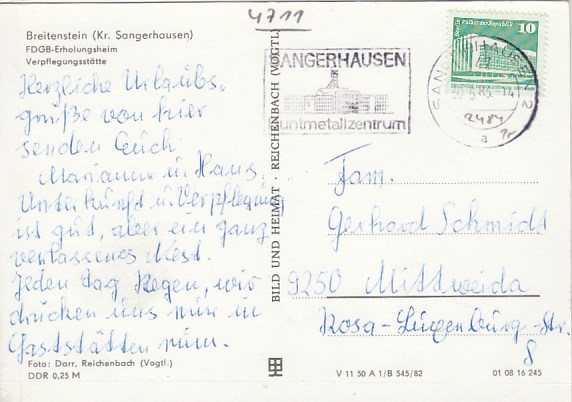 4711
Breitenstein (Kr. Sangerhausen)
FDGB-Erholungsheim
Verpflegungsstätte
Herzliche Urlaubs-
grüße von hier
senden Euch
Mariann u. Hans.
Unterkunft u. Verpflegung
ist gut, aber ein ganz
verlassenes Nest.
Jeden Tag Regen, wir
drücken uns nur in
Gaststätten rum.
Foto: Darr, Reichenbach (Vogtl.)
DDR 0,25 M
BILD UND HEIMAT · REICHENBACH (VOGTL)
SANGERHAUSEN
untmetallzentrum
Palast der Republik
10
SANGERHAUSEN 2
a
Fam.
Gerhard Schmidt
9250 Mittweida
Rosa-Luxemburg-Str.
8
V 11 50 A 1/B 545/82
01 08 16 245